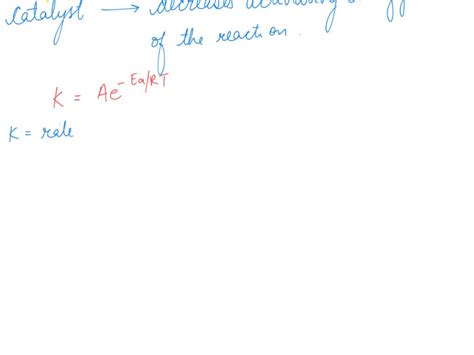 Catalyst → decreases
of the reaction.
K = Ae^-Ea/RT
K = rate